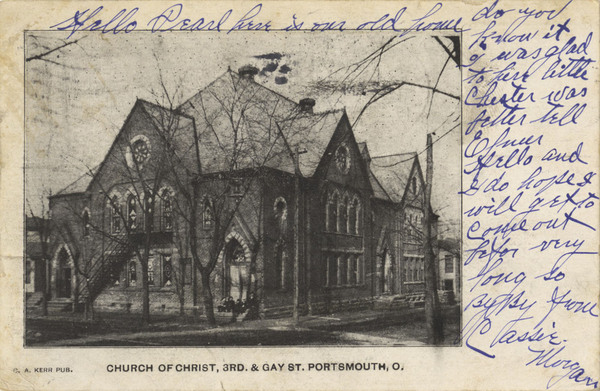 Hello Pearl here is our old home
do you
know it
I was glad
to here little
Chester was
better tell
Elmer
Hello and
I do hope I
will get to
come out
befor very
long so
By By from
Classie
Morgan
C. A. KERR PUB.
CHURCH OF CHRIST, 3RD. & GAY ST. PORTSMOUTH, O.